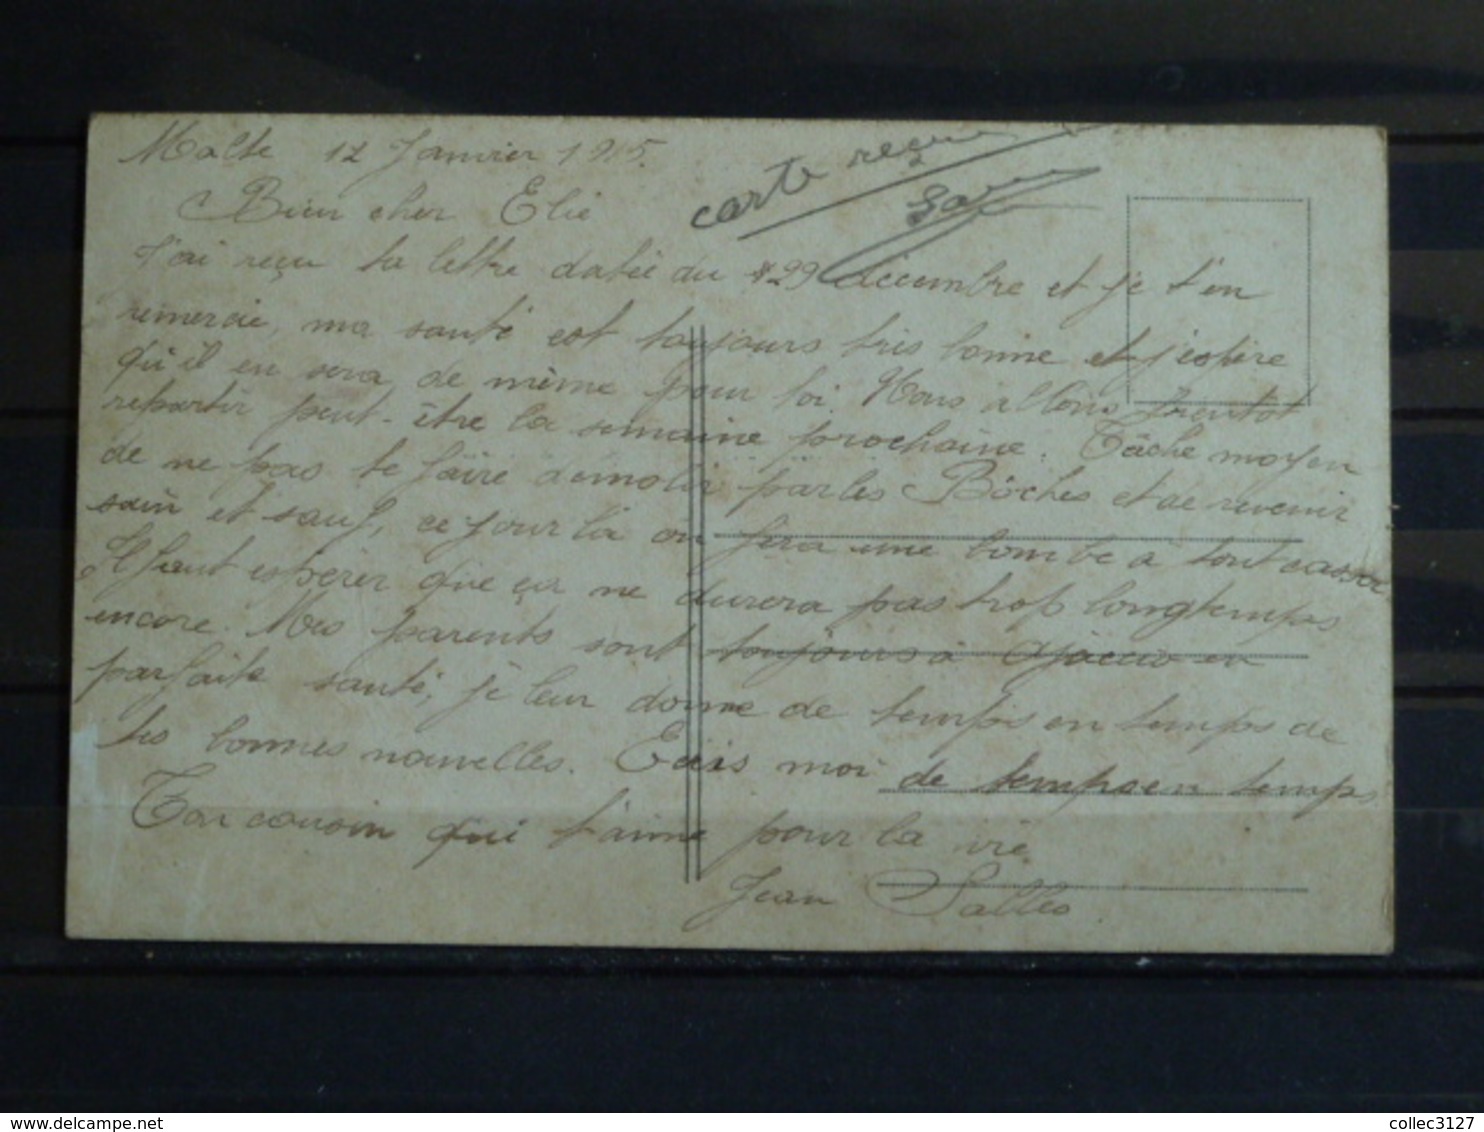 Malte 12 Janvier 1915.
carte reçue
Bien cher Elie
J'ai reçu ta lettre datée du 29 décembre et je t'en
remercie, ma santé est toujours très bonne et j'espère
qu'il en sera de même pour toi. Nous allons bientôt
repartir peut-être la semaine prochaine. Tâche moyen
de ne pas te faire démolir par les Bôches et de revenir
sain et sauf, ce jour là on fera une bombe à tout casser
Il faut espérer que ça ne durera pas trop longtemps
encore. Mes parents sont toujours à Ajaccio en
parfaite santé, je leur donne de temps en temps de
tes bonnes nouvelles. Ecris moi de temps en temps
Ton cousin qui t'aime pour la vie
Jean Salles.
collec3127